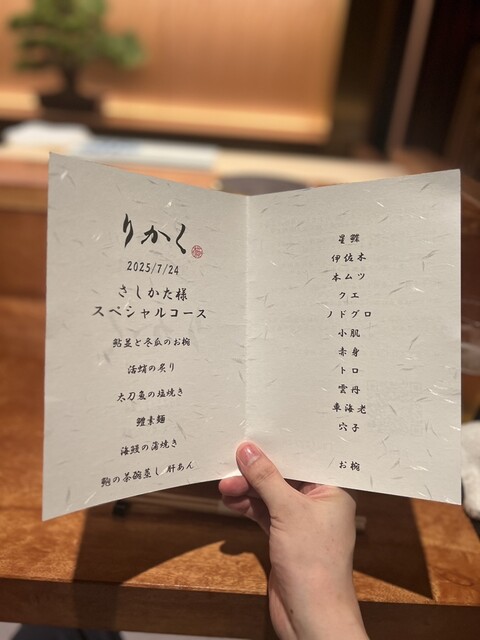 りかく
2025/7/24
さしかた様
スペシャルコース
鮎並と冬瓜のお椀
活蛸の炙り
太刀魚の塩焼き
鱧素麺
海鰻の蒲焼き
鮑の茶碗蒸し 肝あん
星鰈
伊佐木
本ムツ
クエ
ノドグロ
小肌
赤身
トロ
雲丹
車海老
穴子
お椀